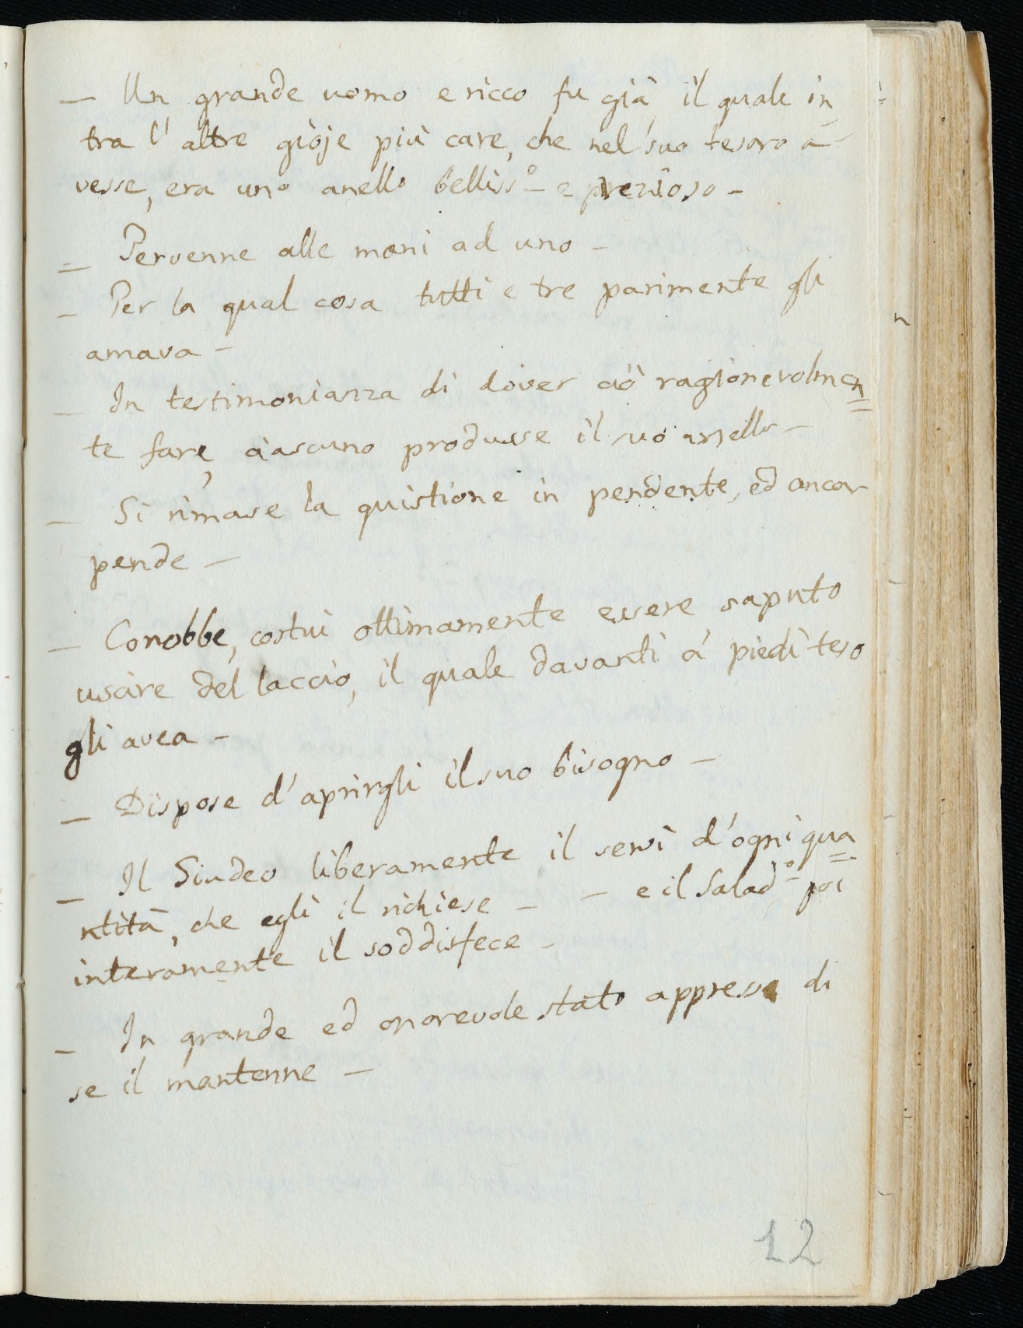 — Un grande uomo e ricco fu già, il quale in
tra l'altre gioje più care, che nel suo tesoro a-
vesse, era uno anello belliss.o e prezioso —
= Pervenne alle mani ad uno —
— Per la qual cosa tutti e tre parimente gli
amava —
— In testimonianza di dover ciò ragionevolmen=
te fare, ciascuno produsse il suo anello —
— Si rimase la quistione in pendente, ed ancor
pende —
— Conobbe, costui ottimamente essere saputo
uscire del laccio, il quale davanti a' piedi teso
gli avea —
— Dispose d'aprirgli il suo bisogno —
— Il Giudeo liberamente il servì d'ogni qua=
ntità, che egli il richiese — — e il Salad.o poi
interamente il soddisfece —
— In grande ed onorevole stato appresso di
se il mantenne —
12